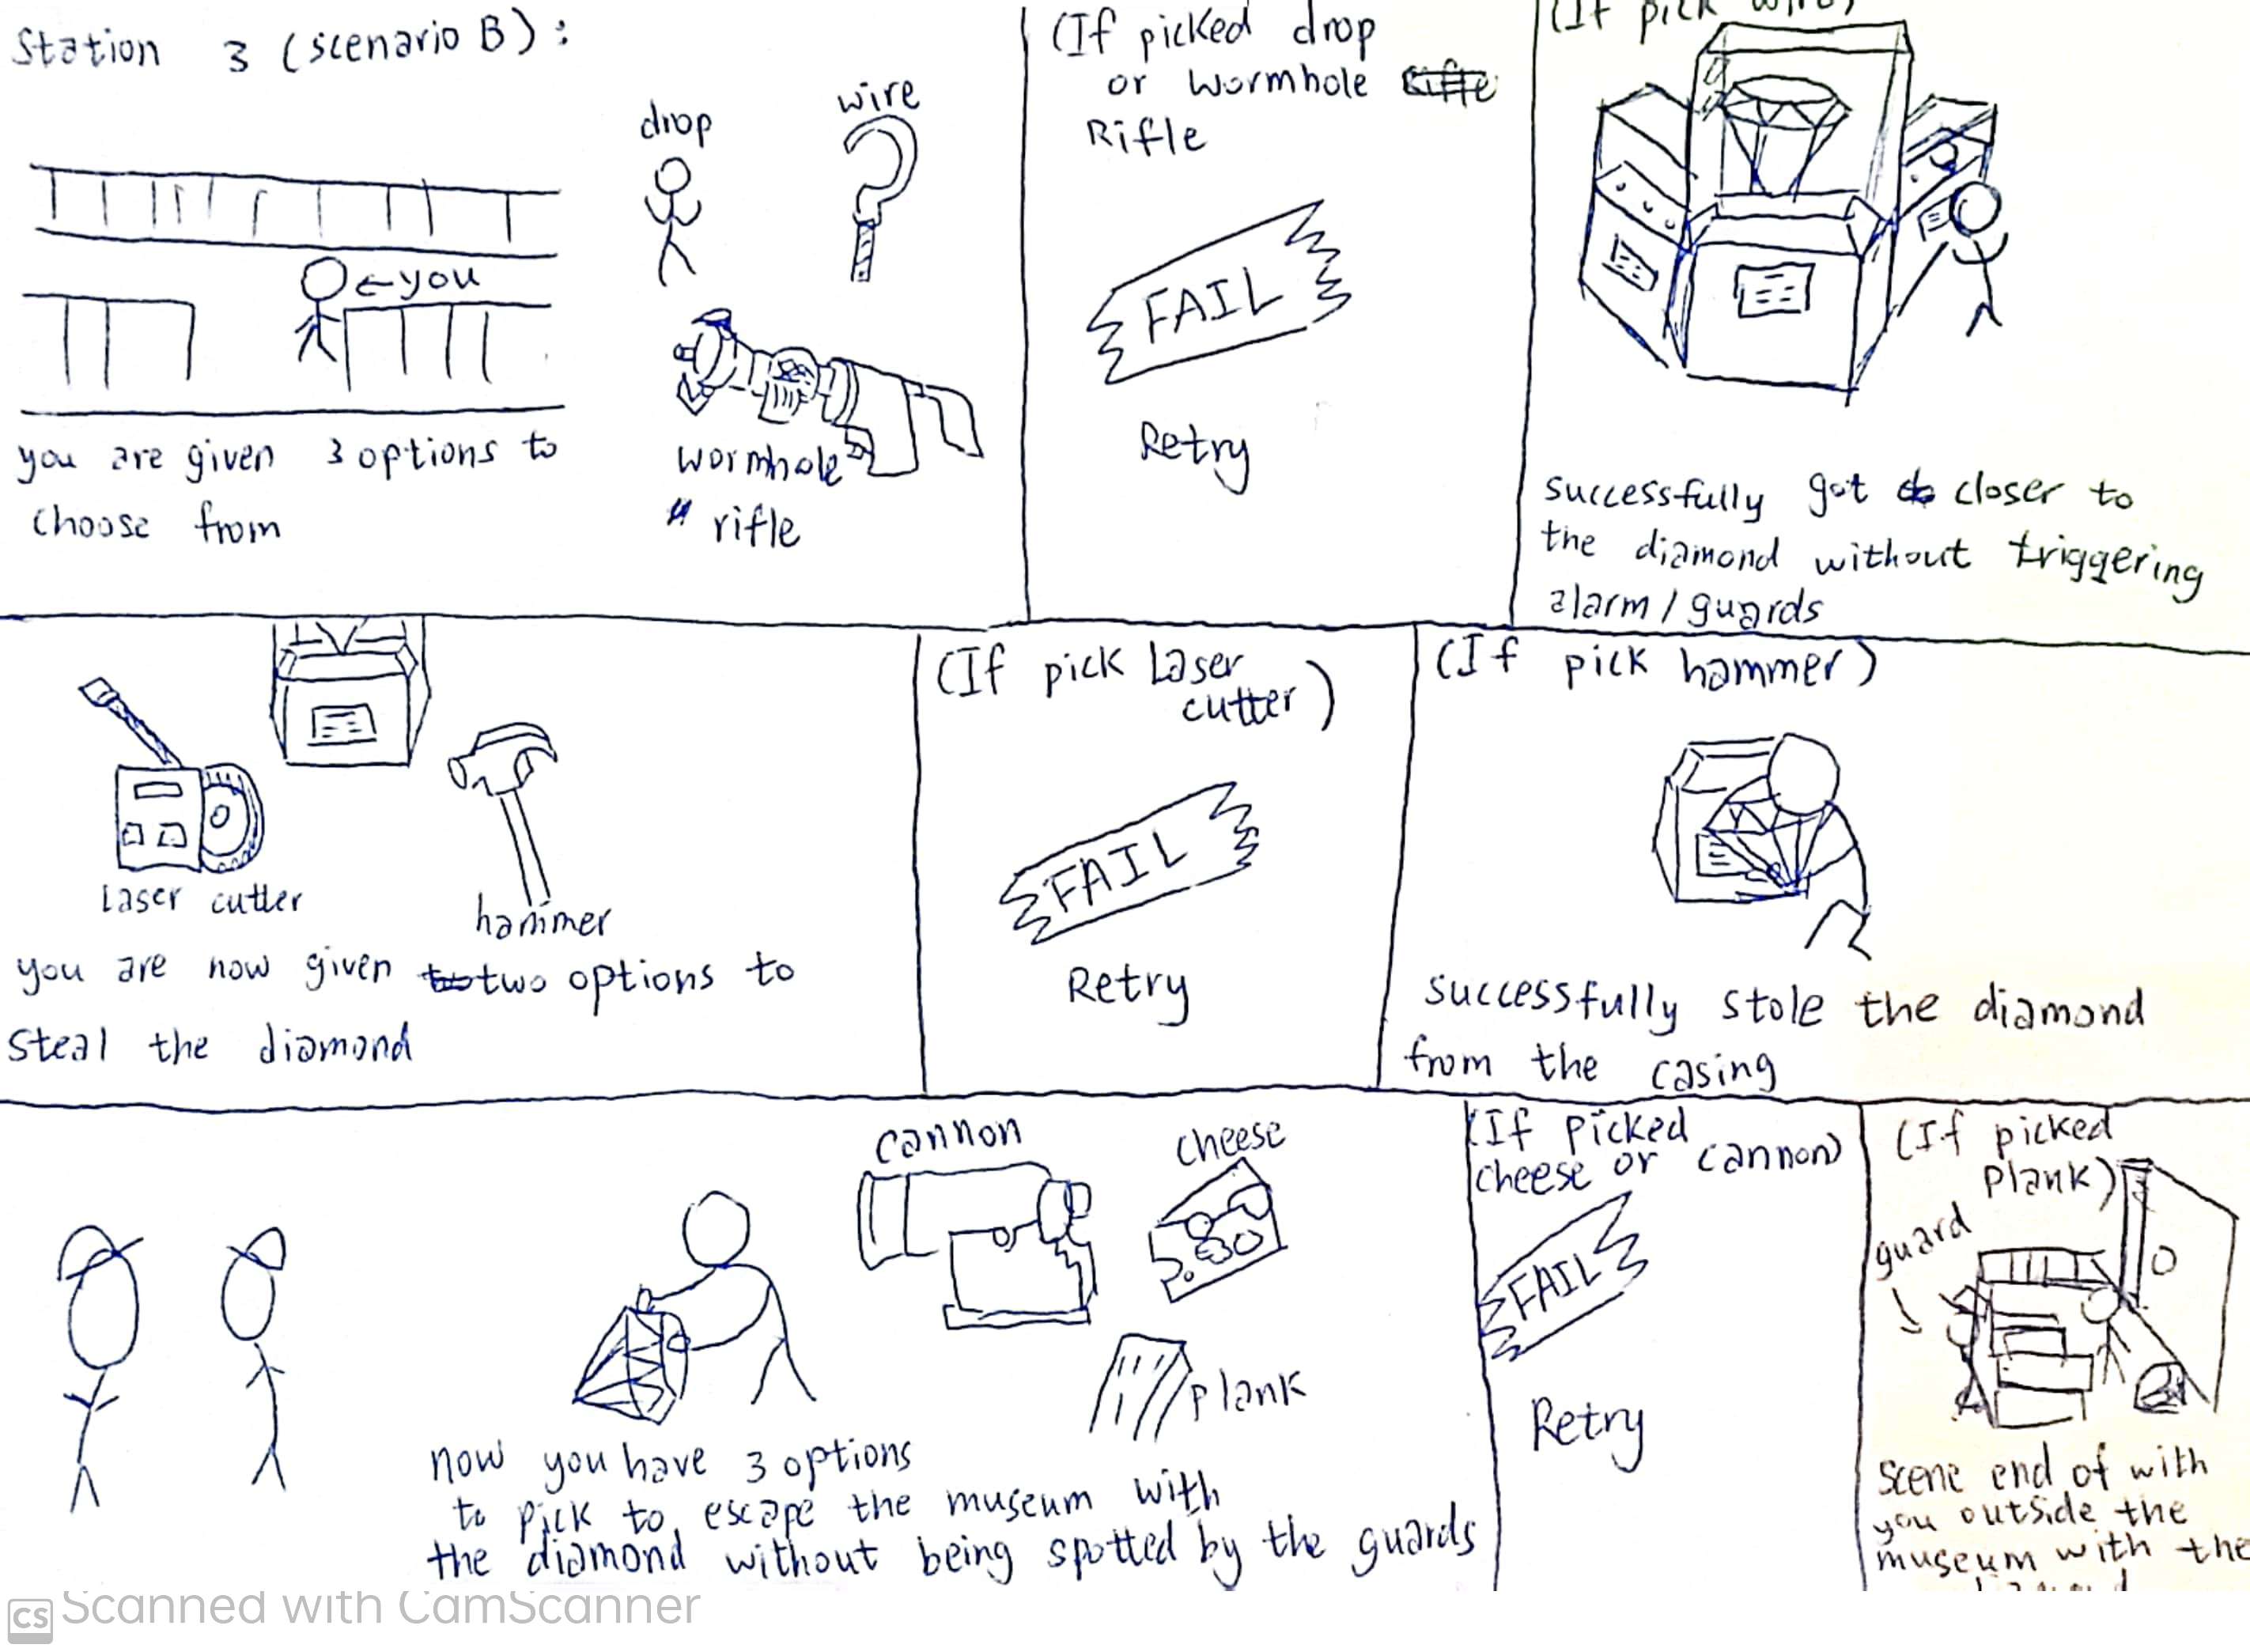 Station 3 (scenario B):
drop
wire
← you
wormhole
rifle
you are given 3 options to
choose from
(If picked drop
or wormhole
Rifle
FAIL
Retry
(If pick wire)
successfully got closer to
the diamond without triggering
alarm/guards
laser cutter
hammer
you are now given two options to
steal the diamond
(If pick Laser
cutter)
FAIL
Retry
(If pick hammer)
successfully stole the diamond
from the casing
cannon
cheese
plank
now you have 3 options
to pick to escape the museum with
the diamond without being spotted by the guards
(If picked
cheese or cannon)
FAIL
Retry
(If picked
Plank)
guard
scene end of with
you outside the
museum with the
CS Scanned with CamScanner